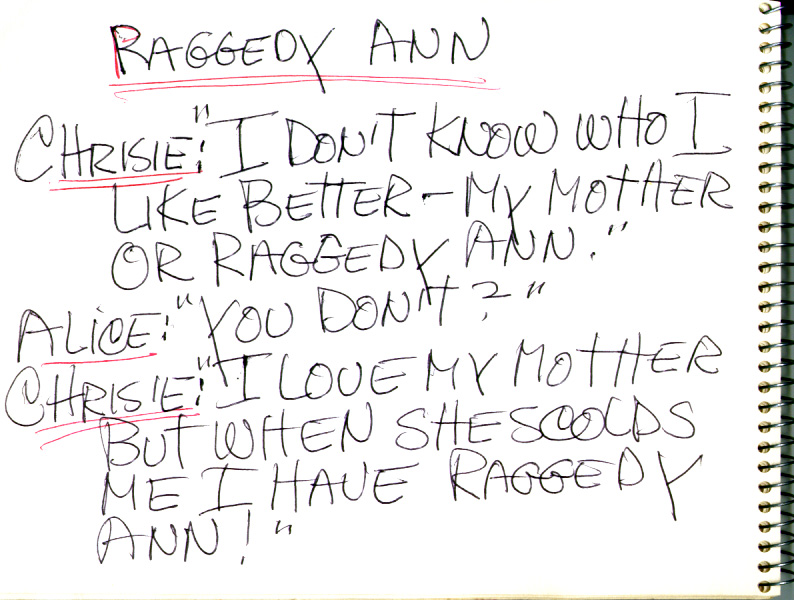 RAGGEDY ANN
CHRISIE: "I DON'T KNOW WHO I
LIKE BETTER - MY MOTHER
OR RAGGEDY ANN."
ALICE: "YOU DON'T?"
CHRISIE: "I LOVE MY MOTHER
BUT WHEN SHE SCOLDS
ME I HAVE RAGGEDY
ANN!"